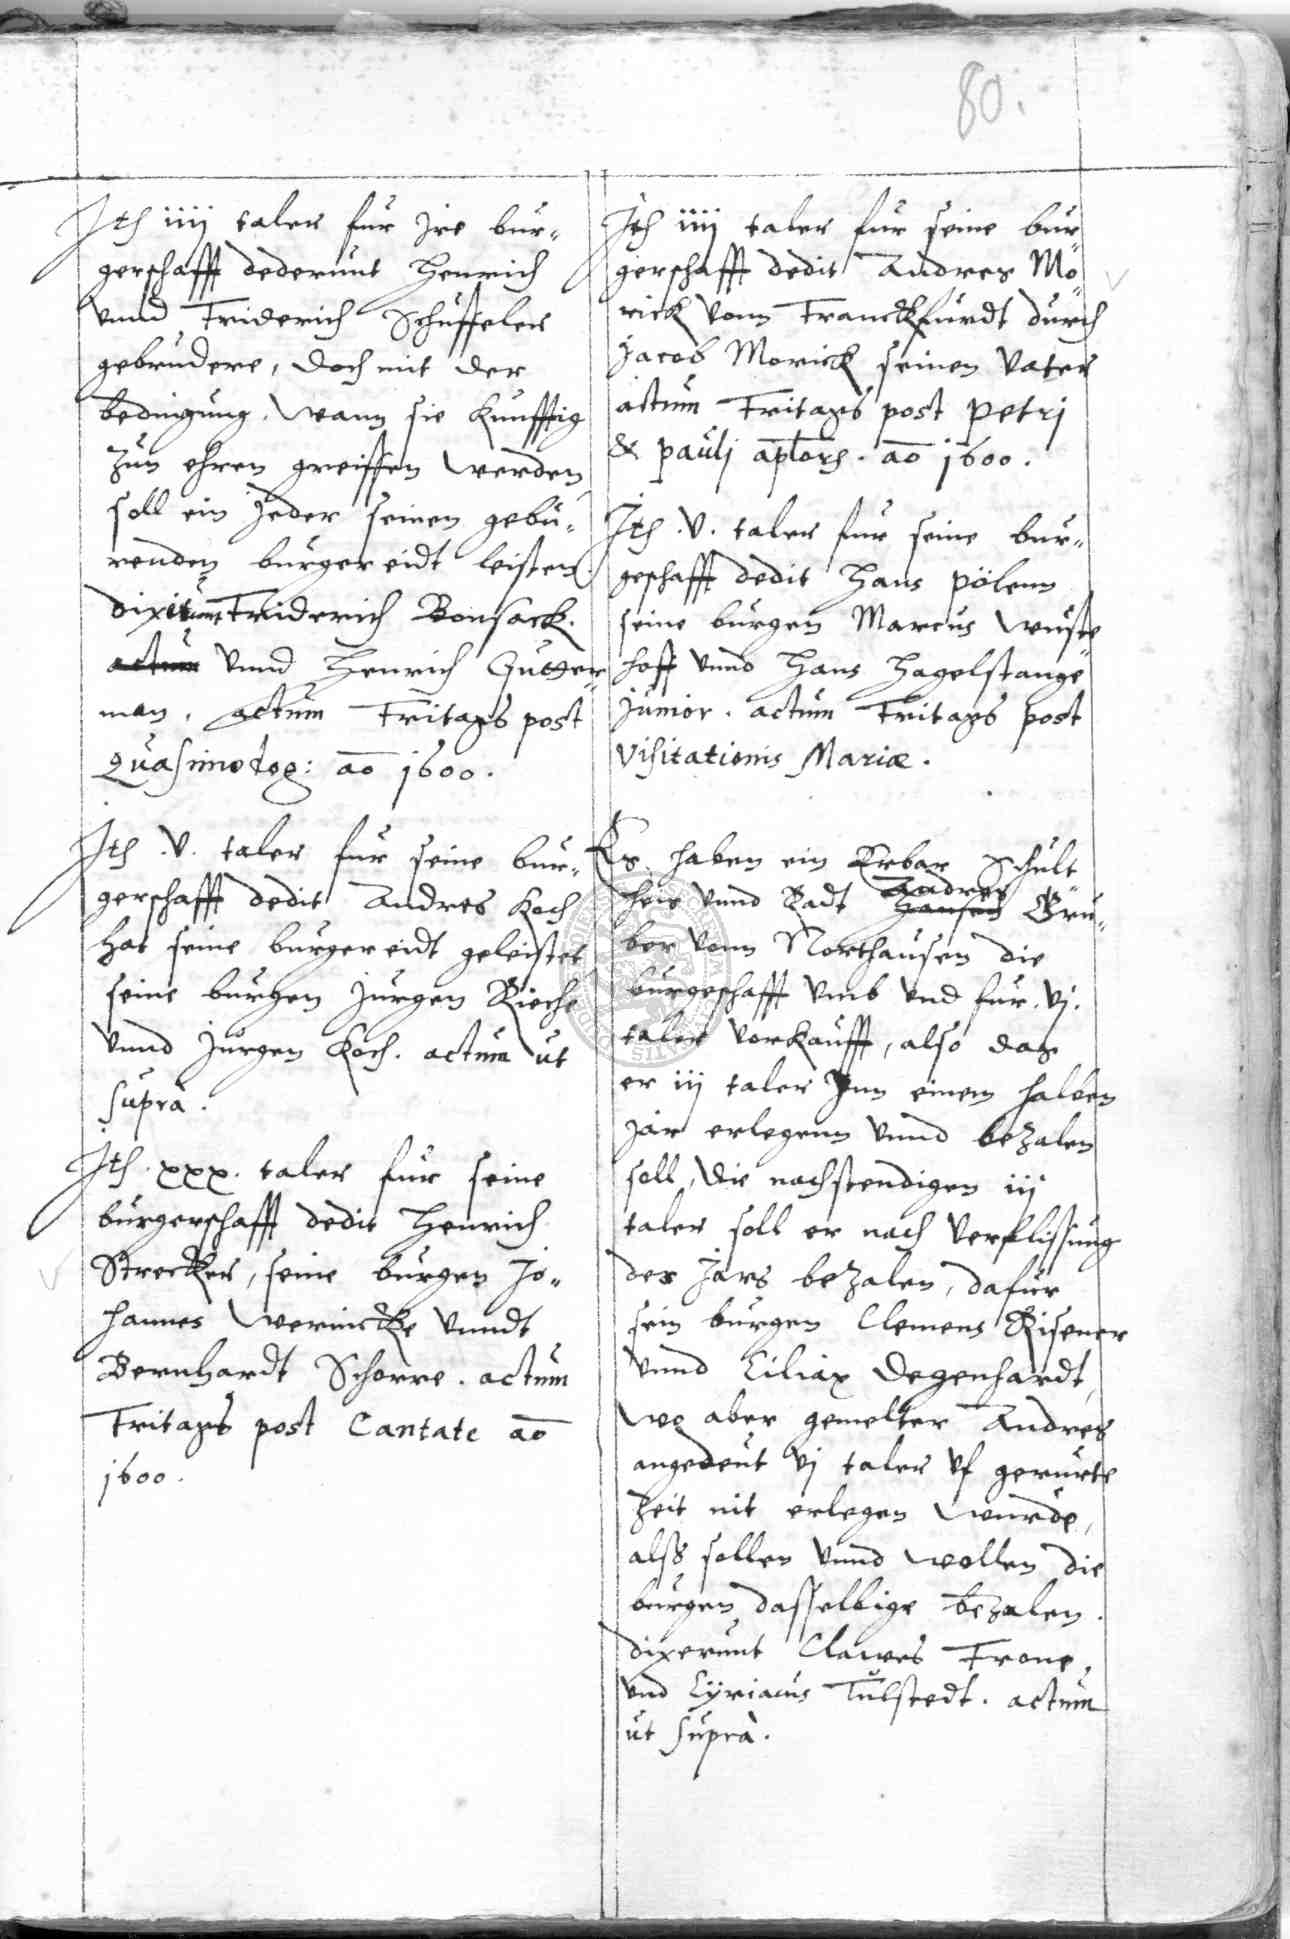 80.
Ith iiij taler fur Jre bur-
gerschafft dederunt Henrich
vnnd Friderich Schusseler
gebrudere, doch mit der
bedingung, wann sie kunfftig
zun ehren greiffen werden
soll ein Jeder seinen gebu-
renden burger eidt leisten.
dixerunt Friderich Bonsack.
actum vnnd Henrich Gutter
man, actum Fritags post
Quasimodog: ao 1600.
Ith .V. taler fur seine bur-
gerschafft dedit Andres Koch
hat seine burger eidt geleistet
seine burgen Jurgen Rieche
vnnd Jurgen Koch. actum ut
supra.
Ith. xxx. taler fur seine
burgerschafft dedit Henrich
Strecker, seine burgen Jo-
hannes Wernicke vnndt
Bernhardt Schorre. actum
Fritags post Cantate ao
1600.
Ith iiij taler fur seine bur-
gerschafft dedit Andres Mo-
rick vonn Franckfurdt durch
Jacob Morick seinen Vater
actum Fritags post Petri
& Pauli aplors. ao 1600.
Ith .V. taler fur seine bur-
geschafft dedit Hans Pölenn
seine burgen Marcus Wuste
hoff vnnd Hans Hagelstange
Junior. actum Fritags post
Visitationis Mariæ.
Es haben ein Erbar Schult
heis vnnd Radt Hansen Andres Gru-
ber vonn Northausen die
burgeschafft vmb vnd fur .vj.
taler vorkaufft, also das
er iij taler Jnn einem halben
Jar erlegenn vnnd bezalen
soll, die nachstendigen iij
taler soll er nach Verflissung
des Jars bezalen, dafur
sein burgen Clemens Risener
vnnd Ciliax Degenhardt,
wo aber gemelter Andres
angedeut vj taler vf gerurte
zeit nit erlegen wurde,
alss sollen vnnd wollen die
burgen dasselbige bezalen.
dixerunt Clawes Frone,
vnd Cyriacus Tulstedt. actum
ut supra.